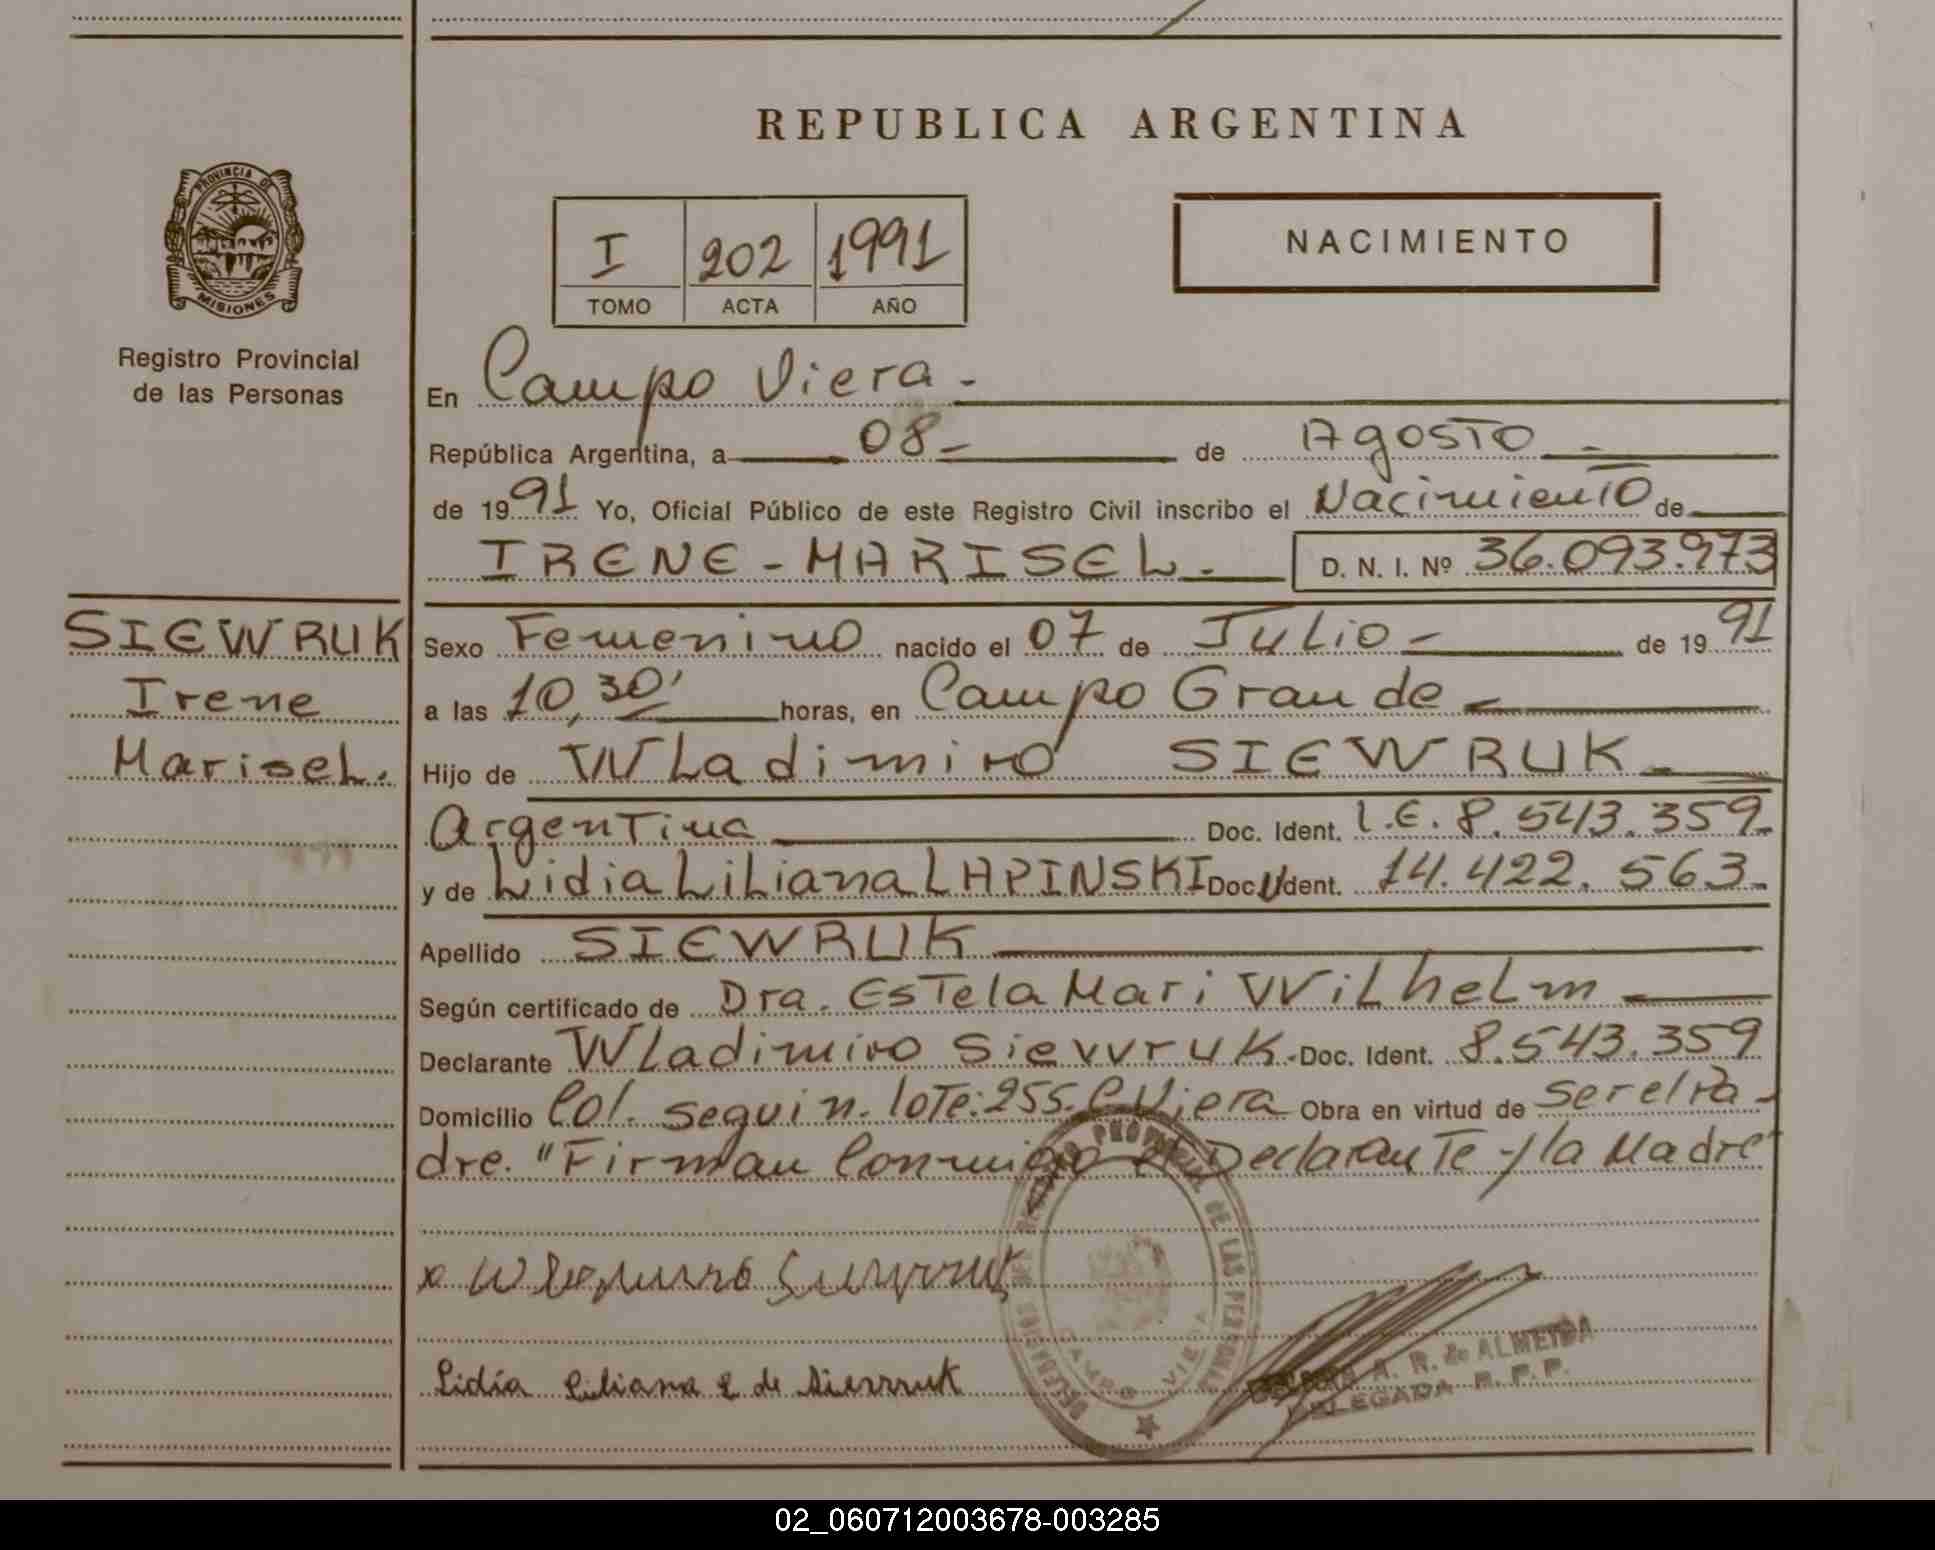 REPUBLICA ARGENTINA
PROVINCIA DE
MISIONES
Registro Provincial
de las Personas
I 202 1991
TOMO ACTA AÑO
NACIMIENTO
En Campo Viera.-
República Argentina, a 08- de Agosto -
de 1991 Yo, Oficial Público de este Registro Civil inscribo el Nacimiento de
IRENE - MARISEL.- D. N. I. Nº 36.093.973
SIEWRUK
Irene
Marisel.
Sexo Femenino nacido el 07 de Julio - de 1991
a las 10,30' horas, en Campo Grande -
Hijo de Wladimiro SIEWRUK -
Argentina Doc. Ident. L.E. 8.543.359-
y de Lidia Liliana LAPINSKI Doc. Ident. 14.422.563-
Apellido SIEWRUK
Según certificado de Dra. Estela Mari Wilhelm -
Declarante Wladimiro Siewruk.- Doc. Ident. 8.543.359
Domicilio Col. Seguin. lote: 255. C. Viera Obra en virtud de ser el Pa-
dre. "Firman Conmigo el Declarante y la Madre"
Lidia Liliana L de Siewruk
DE LAS PERSONAS
CAMPO VIERA
A. R. de ALMEIDA
DELEGADA R. P. P.
02_060712003678-003285